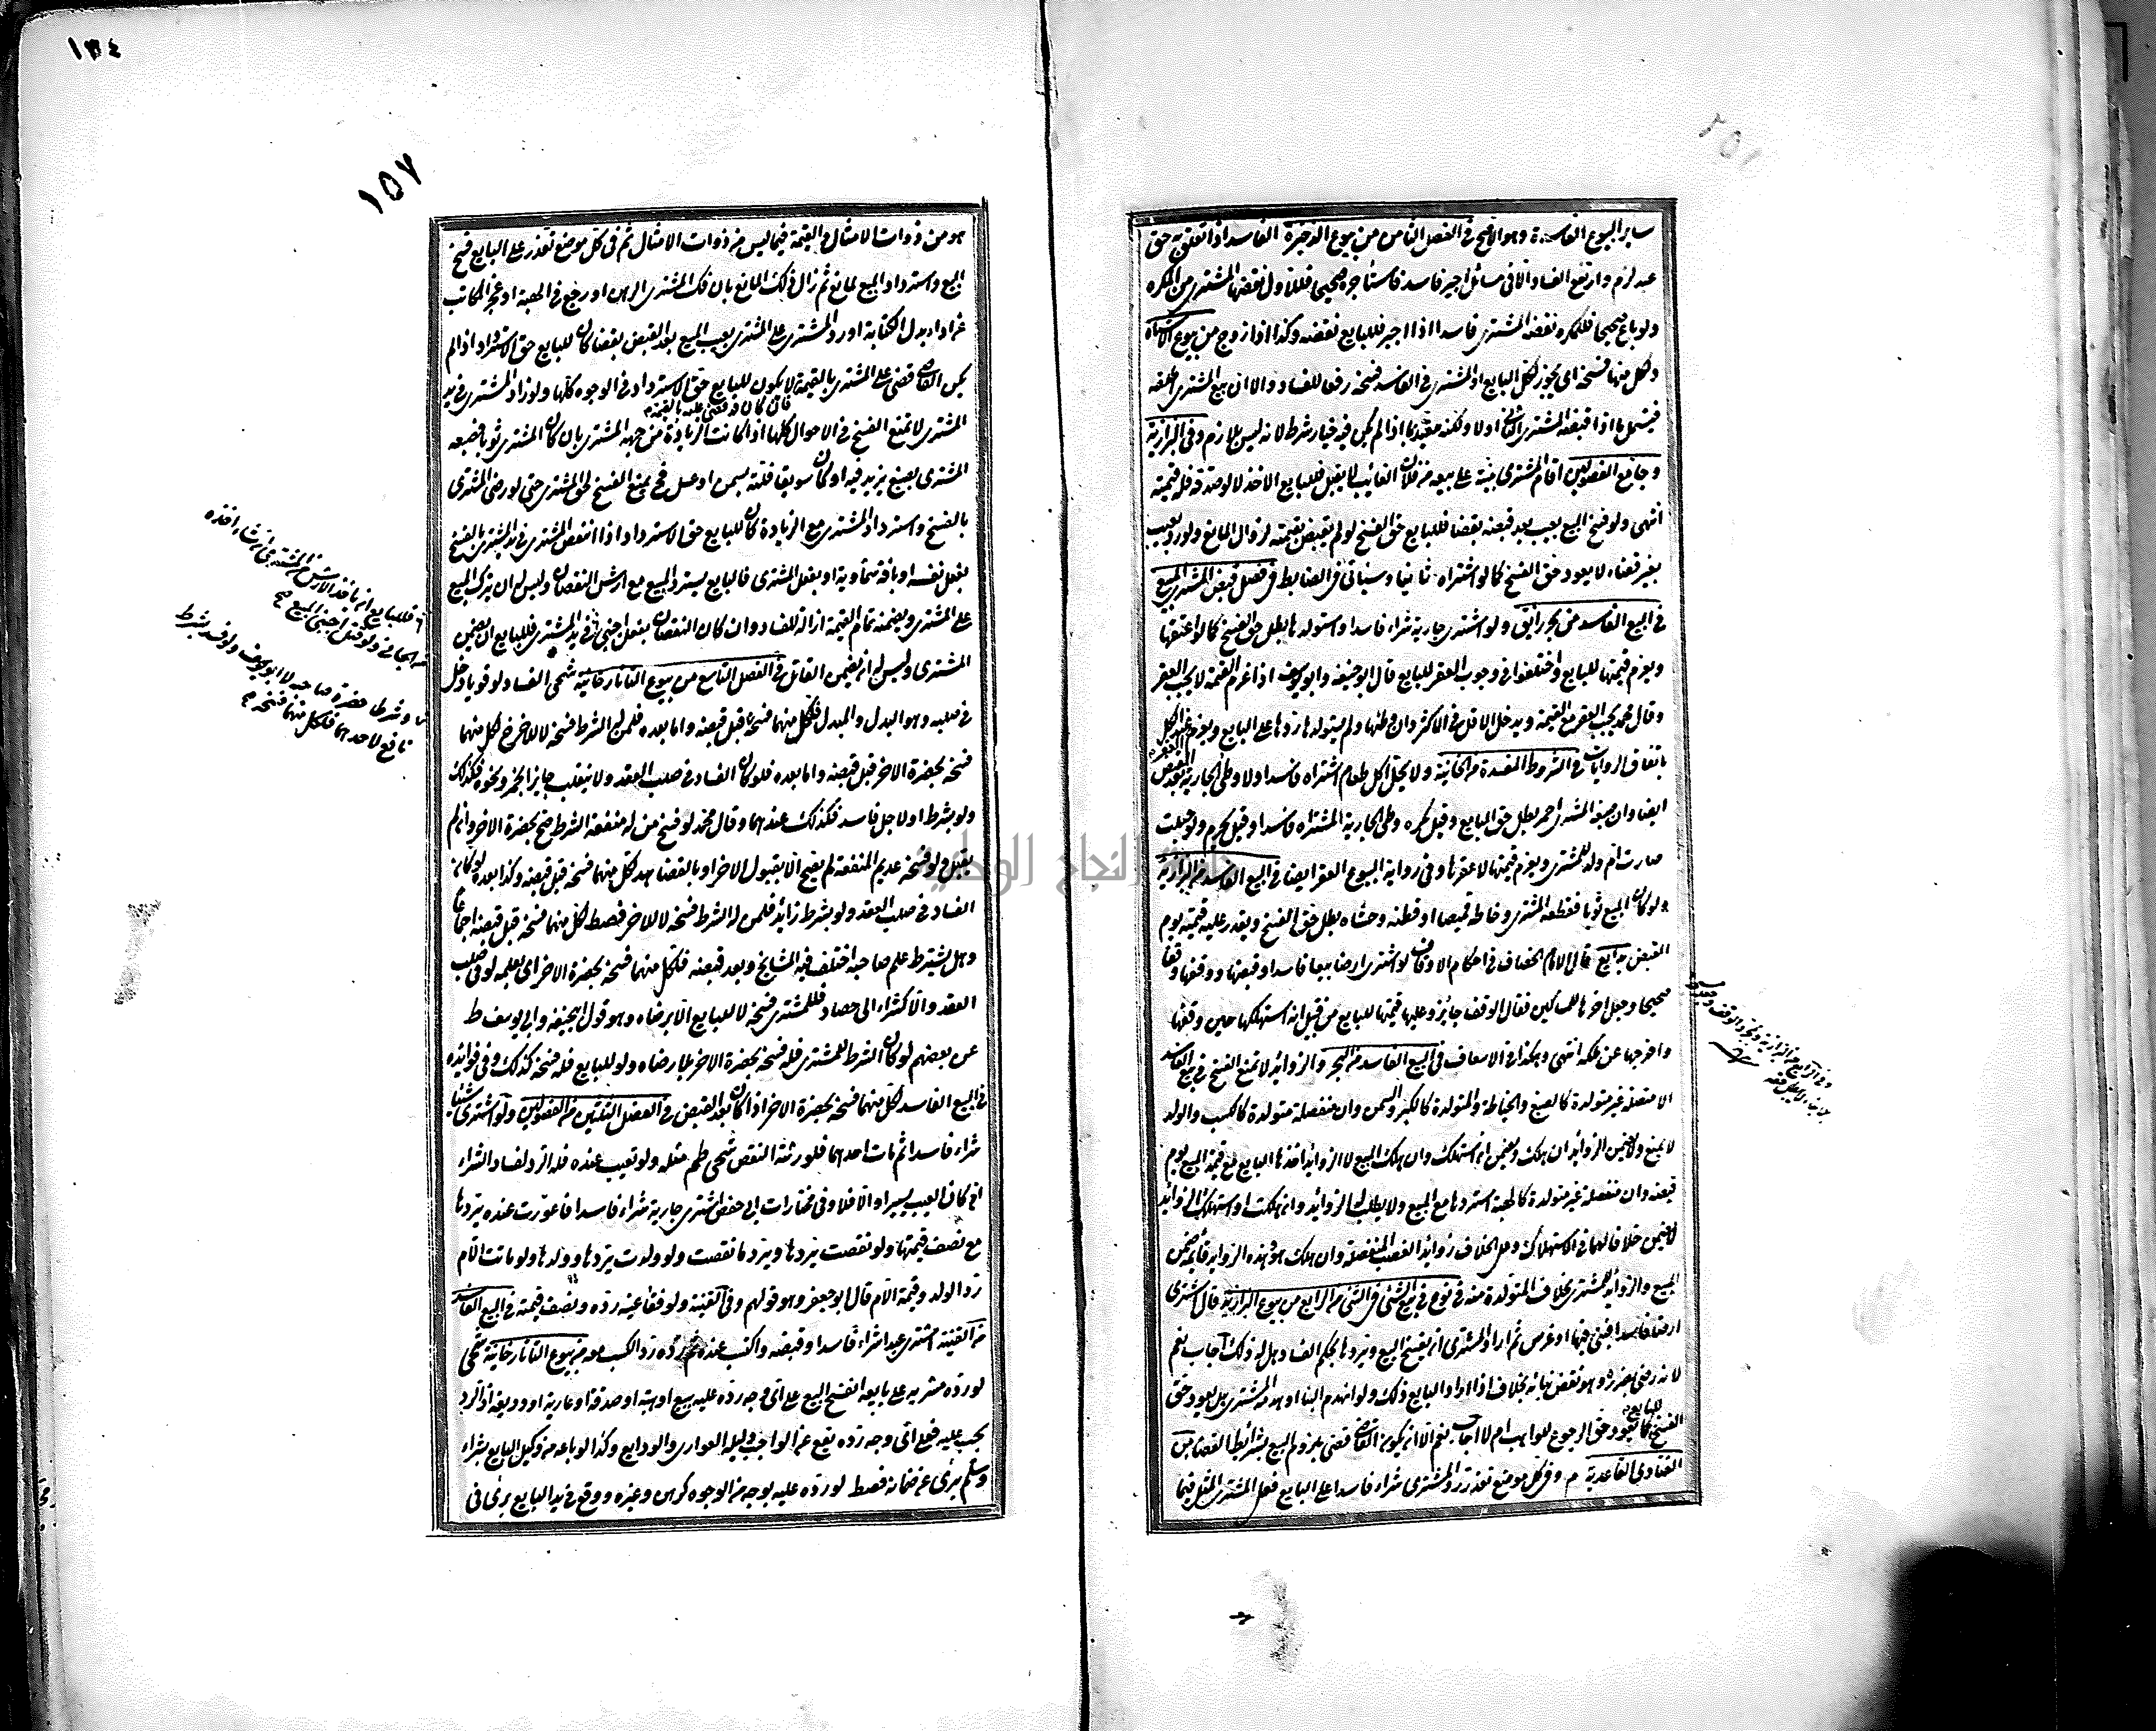 ساير البيوع الفاسدة وهو الاصح في الفصل الثامن من بيوع الذخيرة الفاسد اذا تعلق به حق
عبد لزم وارتفع الفساد الا في مسائل اجر فاسد فاستأجره صحيحا فللاول نقضها المشتري من المكره
ولو باع صحيحا فللمكره نقضه المشتري فاسدا اذا اجر فللبايع نقضه وكذا اذا زوج من بيوع الاشباه
ولكل منهما فسخه اي يجوز لكل البايع او المشتري في الفاسد فسخه رفعا للفساد
فيشمل ما اذا قبضه المشتري اولا ولكنه مقيد بما اذا لم يكن فيه خيار شرط لانه ليس بلازم وفي البزازية
وجامع الفصولين اقام المشتري بينة على بيعه من فلان الغائب لا يقبل فللبايع الاخذ لا لو صدقه فله قيمته
انتهى ولو فسخ البيع بعيب بعد قبضه بقضا فللبايع حق الفسخ لو لم يقبض بقيمته لزوال المانع ولو رد بعيب
بغير قضاء لا يعود حق الفسخ كما لو اشتراه ثانيا وسيأتي في الضابط في فصل قبض المشتري المبيع
في البيع الفاسد من بحر رائق ولو اشترى جارية شراء فاسدا واستولدها بطل حق الفسخ كما لو اعتقها
ويغرم قيمتها للبايع واختلفوا في وجوب العقر للبايع قال ابو حنيفة وابو يوسف اذا غرم القيمة لا يجب العقر
وقال محمد يجب العقر مع القيمة ويدخل الاقل في الاكثر وان وطئها ولم يستولدها ردها على البايع ويغرم
باتفاق الروايات في الشروط المفسدة من الخانية ولا يحل اكل طعام اشتراه فاسدا ولا وطي الجارية
ايضا وان صبغه المشتري احمر بطل حق البايع وقيل يكره وطي الجارية المشتراة فاسدا وقيل يحرم ولو حبلت
صارت ام ولد للمشتري ويغرم قيمتها لا عقرها وفي رواية البيوع العقر ايضا في البيع الفاسد من البزازية
ولو كان المبيع ثوبا فقطعه المشتري وخاطه قميصا او قطنه وحشاه بطل حق الفسخ ويقدر عليه قيمته يوم
القبض بدايع قال الامام الخصاف في احكام الاوقاف لو اشترى ارضا بيعا فاسدا وقبضها ووقفها وقفا
صحيحا وجعل اخرها للمساكين فقال الوقف جائز وعليه قيمتها للبايع من قبل انه استهلكها حين وقفها
واخرجها عن ملكه انتهى وهكذا في الاسعاف في البيع الفاسد من البحر والزوائد لا تمنع الفسخ في بيع الفاسد
الا متصلة غير متولدة كالصبغ والخياطة والمتولدة كالكبر والسمن وان منفصلة متولدة كالكسب والولد
لا يمنع ولا يضمن الزوائد ان هلك ويضمن ان استهلك وان هلك المبيع لا الزوائد اخذها البايع مع قيمة المبيع يوم
قبضه وان منفصلة غير متولدة كالهبة استردها مع المبيع ولا يطلب له الزوائد وان هلكت او استهلك الزوائد
لا يضمن خلافا لهما في الاستهلاك وعلى الخلاف زوائد الغصب المنفصلة وان هلك هو وهذه الزوائد قائمة ضمن
المبيع والزوائد للمشتري بخلاف المتولدة منه في نوع في بيع الشئ في الشئ من الرابع من بيوع البزازية قال اشترى
ارضا فاسدا فبنى فيها او غرس ثم اراد المشتري ان يفسخ البيع ويردها بحكم الفساد هل له ذلك اجاب نعم
لانه رضي بضرره وهو نقض بنائه بخلاف اذا اراد البايع ذلك ولو انهدم البنا او هدمه المشتري هل يعود حق
الفسخ للبايع كما يعود حق الرجوع للواهب ام لا اجاب نعم الا ان يكون القاضي قضى بلزوم البيع بشرائط القضا من
الفتاوى القاعدية م وفي كل موضع تعذر رد المشتري شراء فاسدا على البايع فعلى المشتري المثل فيما
١٣٤
١٥٧
هو من ذوات الامثال والقيمة فيما ليس من ذوات الامثال ثم في كل موضع تعذر على البايع فسخ
البيع واسترداد المبيع لمانع ثم زال ذلك المانع بان فك المشتري الرهن او رجع في الهبة او عجز المكاتب
عن اداء بدل الكتابة او رد المشتري على المشتري بعيب المبيع بعد القبض بقضا كان للبايع حق الاسترداد اذا لم
يكن القاضي قضى على المشتري بالقيمة لا يكون للبايع حق الاسترداد في الوجوه كلها ولو زاد المشتري في يد
فان كان قد قضى عليه بالقيمة م
المشتري لا تمنع الفسخ في الاحوال كلها اذا كانت الزيادة من جهة المشتري بان كان المشتري ثوبا فصبغه
المشتري بصبغ يزيد فيه او كان سويقا فلته بسمن او عسل فح يمنع الفسخ لحق المشتري حتى لو رضي المشتري
بالفسخ واسترداد المشتري مع الزيادة كان للبايع حق الاسترداد اذا انتقص المشتري في يد المشتري بالفسخ
بفعل نفسه او بافة سماوية او بفعل المشتري فالبايع يسترد المبيع مع ارش النقصان وليس له ان يترك المبيع
على المشتري ويضمنه تمام القيمة ازالة للفساد وان كان النقصان بفعل اجنبي في يد المشتري فللبايع ان يضمن
المشتري وليس له ان يضمن القاتل في الفصل التاسع من بيوع التاتارخانية شحى الفساد لو قويا دخل
في صلبه وهو البدل والمبدل فلكل منهما فسخه قبل قبضه واما بعده فلمن له الشرط فسخه لا للاخر خ لكل منهما
فسخه بحضرة الاخر قبل قبضه واما بعده فلو كان الفساد في صلب العقد ولا ينقلب جايزا كخمر ونحوه فكذلك
ولو بشرط او لاجل فاسد فكذلك عندهما وقال محمد لو فسخ من له منفعة الشرط صح بحضرة الاخر وان لم
يقبل ولو فسخه عديم المنفعة لم يصح الا بقبول الاخر او بالقضا هد لكل منهما فسخه قبل قبضه وكذا بعده لو كان
الفساد في صلب العقد ولو بشرط زائد فلمن له الشرط فسخه لا للاخر فصط لكل منهما فسخه قبل قبضه اجماعا
وهل يشترط علم صاحبه اختلف فيه المشايخ وبعد قبضه فلكل منهما فسخه بحضرة الاخر اي بعلمه لو في صلب
العقد والا كشراء الى حصاد فللمشتري فسخه لا للبايع الا برضاه وهو قول ابي حنيفة وابي يوسف ط
عن بعضهم لو كان الشرط للمشتري فله فسخه بحضرة الاخر بلا رضاه ولو للبايع فله فسخه كذلك وفي فوائده
في البيع الفاسد لكل منهما فسخه بحضرة الاخر اذا كان بعد القبض في الفصل الثلثين من الفصولين ولو اشترى شيئا
شراء فاسدا ثم مات احدهما فلورثته النقض شحى ظم مثله ولو تعيب عنده فله الرد لفساد الشراء
ان كان العيب يسيرا والا فلا وفي مختارات ابي حفص اشترى جارية شراء فاسدا فاعورت عنده يردها
مع نصف قيمتها ولو نقصت يردها ويرد ما نقصت ولو ولدت يردها وولدها ولو ماتت الام
رد الولد وقيمة الام قال ابو جعفر وهو قولهم وفي القنية ولو فقأ عينه رده ونصف قيمته في البيع الفاسد
من القنية اشترى عبدا شراء فاسدا وقبضه واكتسب عنده ثم رده رد الكسب معه من بيوع التاتارخانية شحى
لو رده مشتريه على بايعه انفسخ البيع على اي وجه رده عليه ببيع او هبة او صدقة او عارية او وديعة اذ الرد
يجب عليه فعلى اي وجه رده يقع عن الواجب دليله العواري والودايع وكذا لو باعه من وكيل البايع بشراء
وسلم برئ عن ضمانه فصط لو رده عليه بوجه من الوجوه كرهن وغيره ووقع في يد البايع برئ في